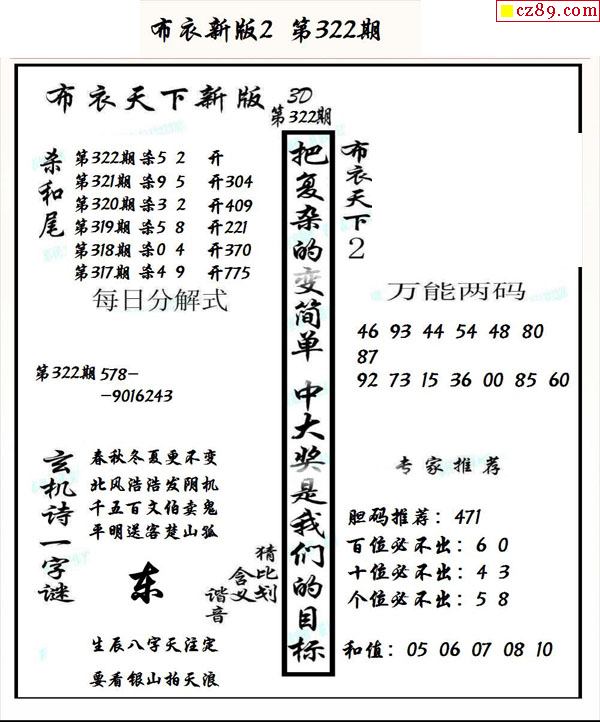 cz89.com
布衣新版2 第322期
布衣天下新版 3D
第322期
杀和尾
第322期 杀5 2 开
第321期 杀9 5 开304
第320期 杀3 2 开409
第319期 杀5 8 开221
第318期 杀0 4 开370
第317期 杀4 9 开775
每日分解式
第322期 578-
-9016243
玄机诗一字谜
春秋冬夏更不变
北风浩浩发阴机
千五百文伯卖鬼
平明送客楚山孤
东
猜比划
含义
谐音
生辰八字天注定
要看银山拍天浪
把复杂的变简单 中大奖是我们的目标
布衣天下2
万能两码
46 93 44 54 48 80
87
92 73 15 36 00 85 60
专家推荐
胆码推荐：471
百位必不出：6 0
十位必不出：4 3
个位必不出：5 8
和值：05 06 07 08 10